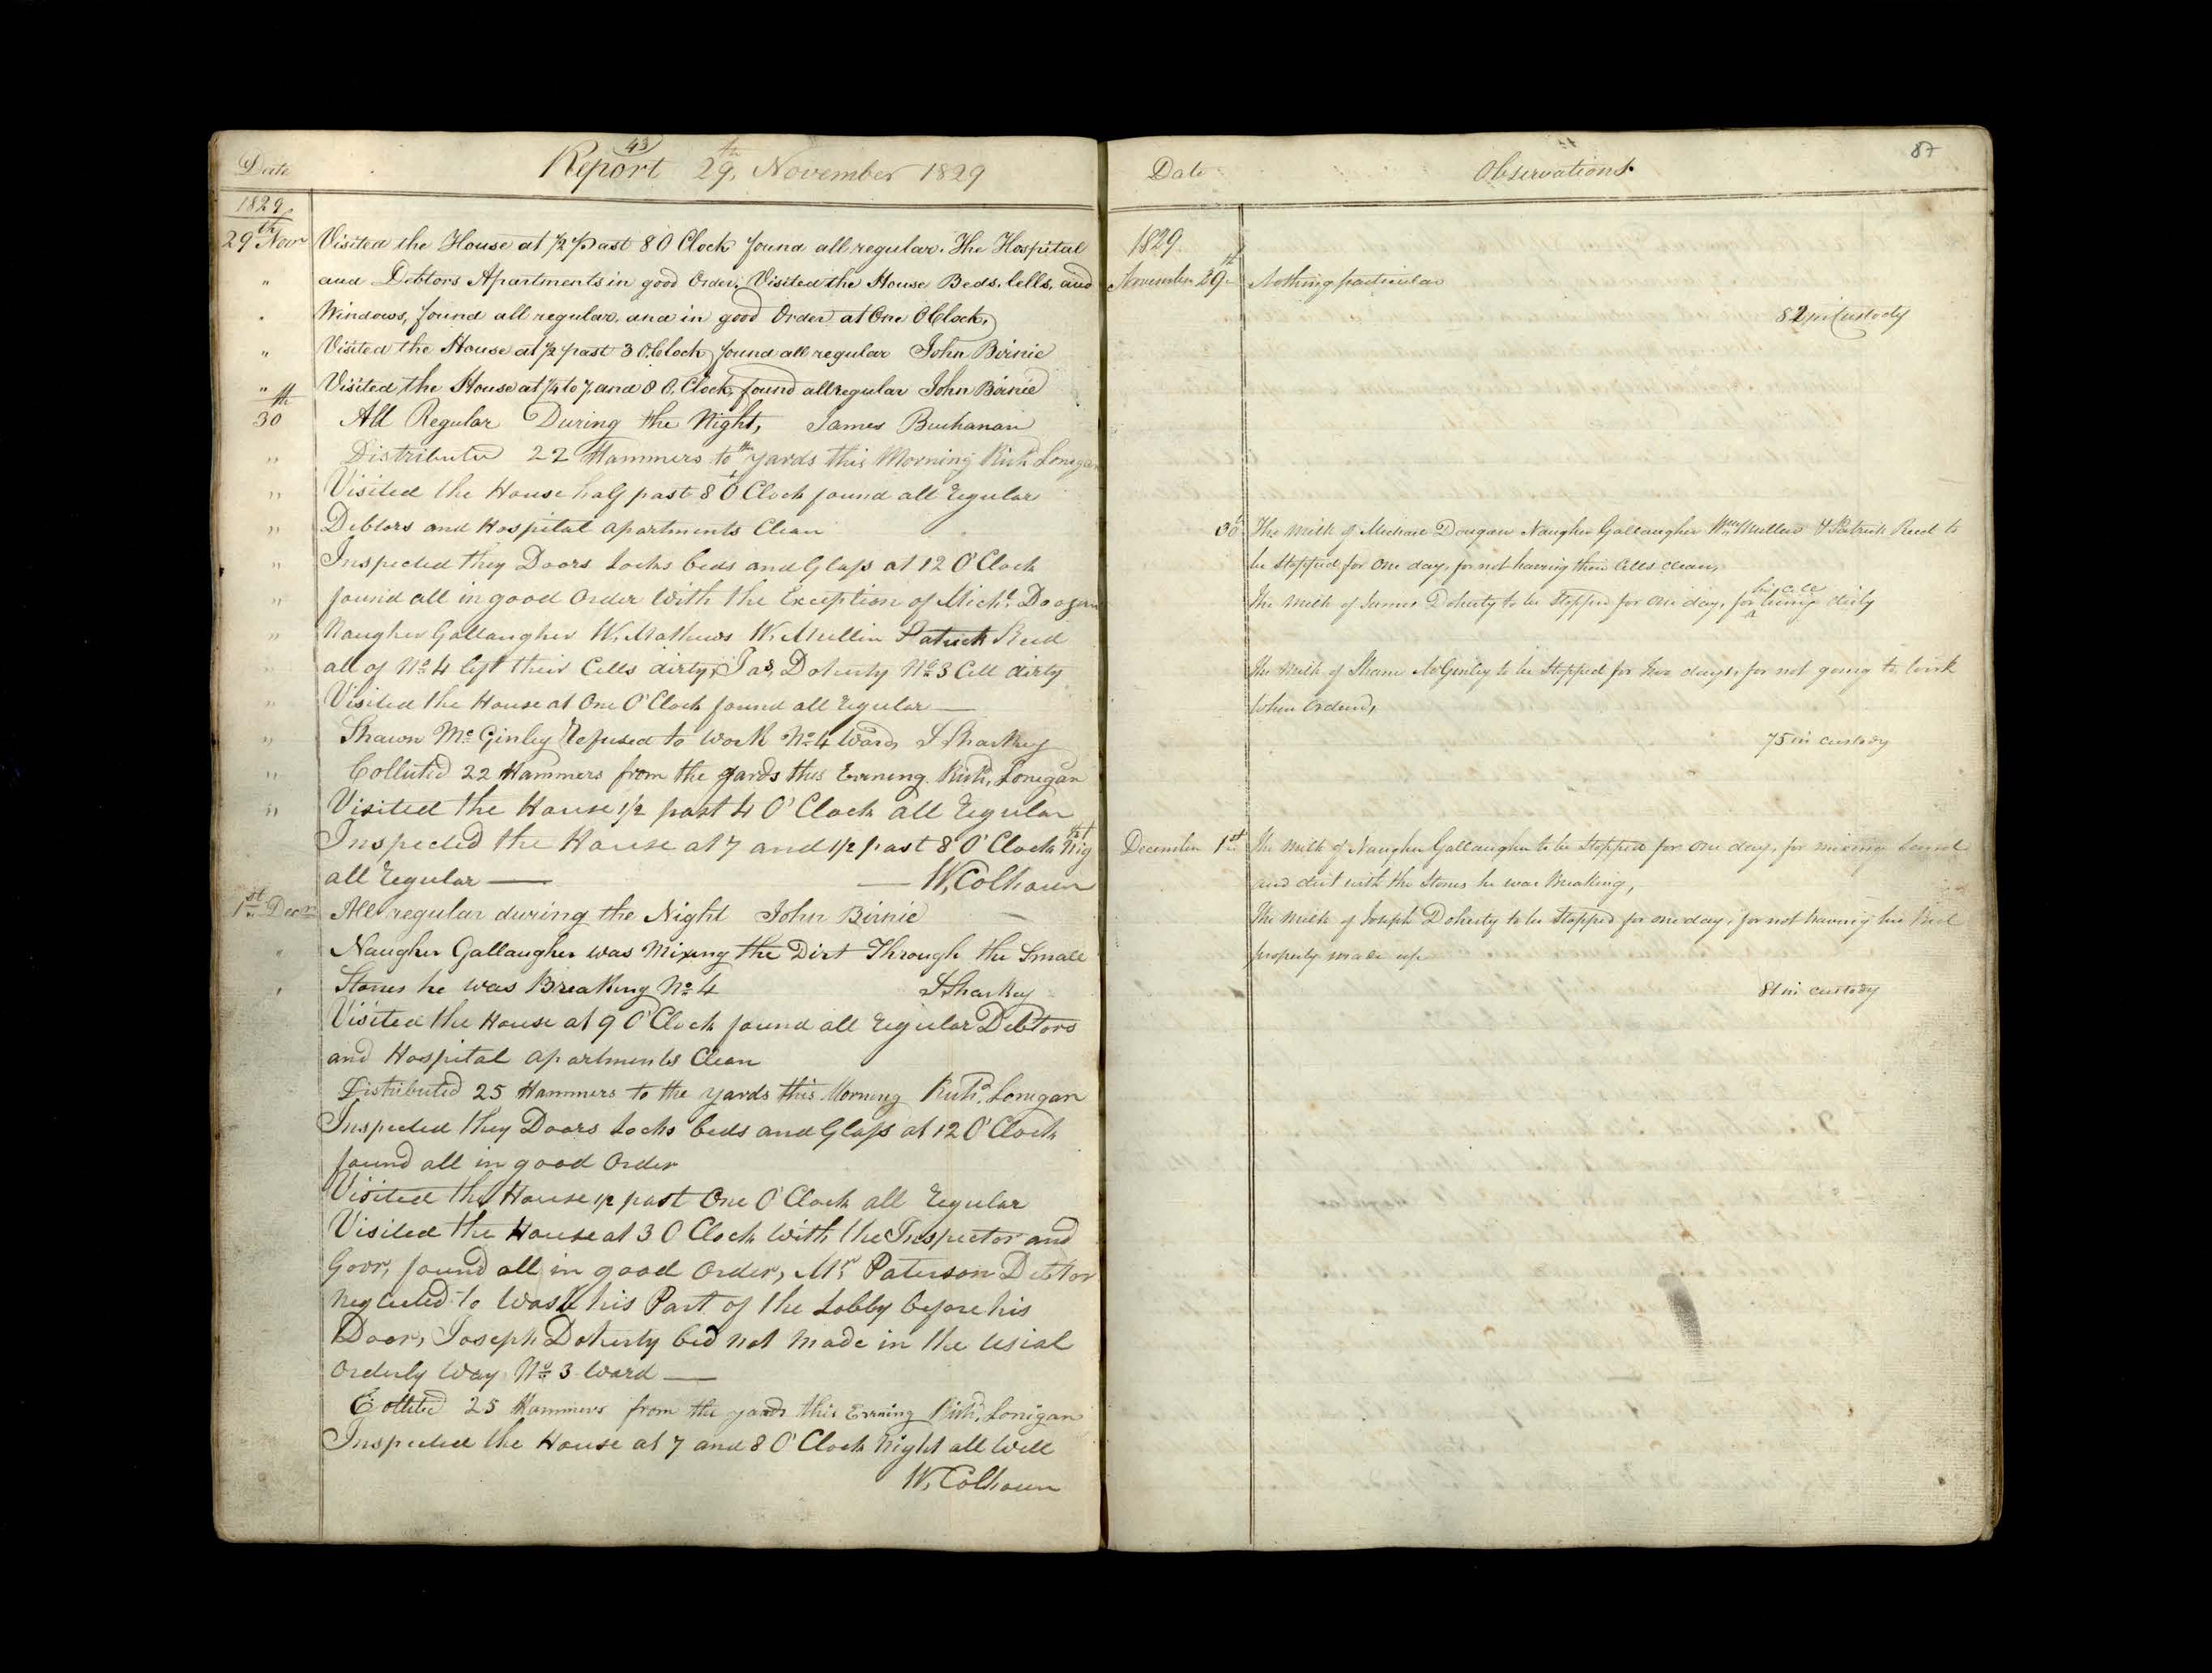 43
Date
Report 29th, November 1829
1829
29th Novr Visited the House at 1/2 Past 8 O Clock found all regular. The Hospital
" and Debtors Apartments in good Order. Visited the House Beds. Cells, and
" Windows, found all regular, and in good Order at One O Clock,
" Visited the House at 1/2 past 3 O Clock found all regular John Birnie
" Visited the House at 1/4 to 7 and 8 O, Clock, found all regular John Birnie
30th All Regular During the Night, James Buchanan
" Distributed 22 Hammers to the yards this Morning Richd Lonigan
" Visited the House half past 8 O Clock found all Regular
" Debtors and Hospital apartments Clean
" Inspected they Doors Locks beds and Glass at 12 O'Clock
" found all in good Order With the Exception of Michl. Doogan
" Naugher Gallaugher W. Mathews W. Mullin Patrick Reed
" all of No. 4 left their Cells dirty, Jas, Doherty No. 3 Cell dirty
" Visited the House at One O'Clock found all Regular —
" Shawn Mc Ginley Refused to work No. 4 Ward J Sharkey
" Colletid 22 Hammers from the yards this Evening Richd, Lonigan
" Visited the House 1/2 past 4 O'Clock all Regular
Inspected the House at 7 and 1/2 past 8 O'Clock Night
all Regular — — W, Colhoun
1st Decr All regular during the Night John Birnie —
" Naugher Gallaugher was Mixing the Dirt Through the Small
" Stones he was Breaking No. 4 J Sharkey
Visited the House at 9 O'Clock found all Regular Debtors
and Hospital apartments Clean
Distributed 25 Hammers to the yards this Morning Richd. Lonigan
Inspected they Doors Locks beds and Glass at 12 O'Clock
found all in good Order
Visited the House 1/2 past One O'Clock all Regular
Visited the House at 3 O Clock With the Inspector and
Govr, found all in good Order, Mr. Paterson Debtor
Neglected to Wash his Part of the Lobby before his
Door, Joseph Doherty bed not Made in the Usial
Orderly Way No. 3 Ward —
Colletid 25 Hammers from the yards this Evening Richd, Lonigan
Inspected the House at 7 and 8 O'Clock Night all Well
W, Colhoun
Date
Observations.
87
1829
November 29th Nothing particular
82 in Custody
30th The Milk of Micheal Dougan Naugher Gallaugher Wm Mullan & Patrick Reed to
be Stopped for One day, for not having their Cells clean,
The Milk of James Doherty to be Stopped for One day, for his cell being dirty
The Milk of Shane McGinley to be Stopped for Two days, for not going to Work
When Ordered,
75 in custody
December 1st The Milk of Naugher Gallaugher to be Stopped for One day, for mixing Sand
and dirt with the Stones he was Breaking,
The Milk of Joseph Doherty to be Stopped for one day, for not having his Bed
properly made up
81 in custody